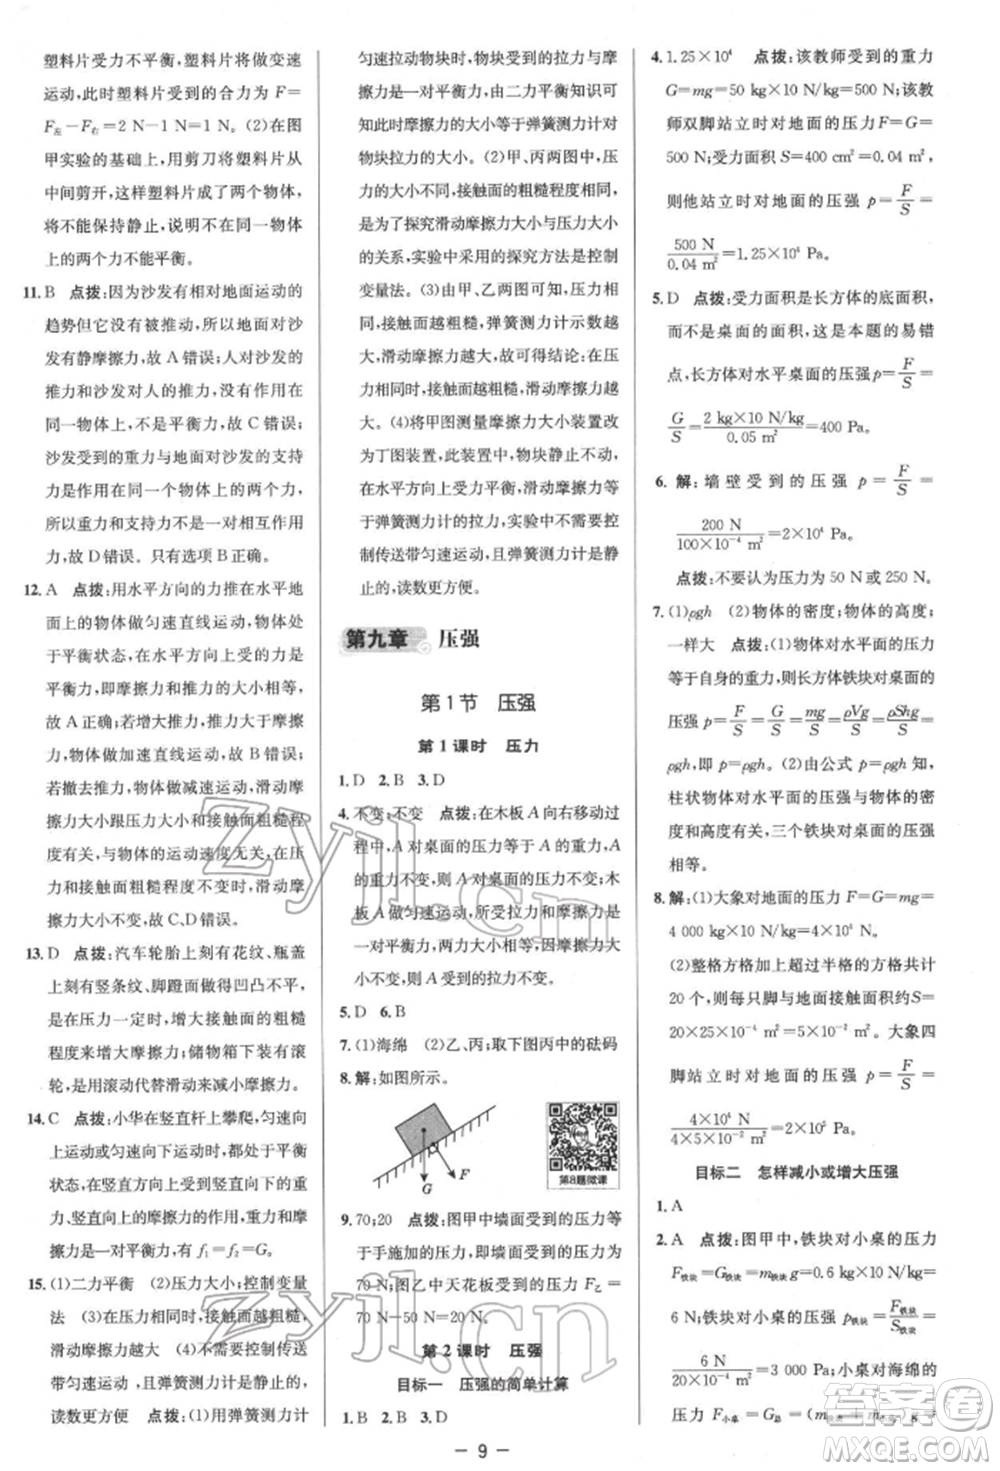 塑料片受力不平衡,塑料片将做变速
运动,此时塑料片受到的合力为 F=
F左-F右=2 N-1 N=1 N。(2)在图
甲实验的基础上,用剪刀将塑料片从
中间剪开,这样塑料片成了两个物体,
将不能保持静止,说明不在同一物体
上的两个力不能平衡。
11. B 点拨:因为沙发有相对地面运动的
趋势但并没有被推动,所以地面对沙
发有静摩擦力,故 A 错误;人对沙发的
推力和沙发对人的推力,没有作用在
同一物体上,不是平衡力,故 C 错误;
沙发受到的重力与地面对沙发的支持
力是同一个物体上的两个平衡的力,
所以重力和支持力不是一对相互作用
力,故 D 错误。只有选项 B 正确。
12. A 点拨:用水平方向的力推在水平地
面上的物体做匀速直线运动,物体处
于平衡状态,在水平方向上受到一对
平衡力,即摩擦力和推力,所以二力相等,
故 A 正确;若增大推力,推力大于摩擦
力,物体做加速直线运动,故 B 错误;
若撤去推力,物体做减速运动,滑动摩
擦力大小跟压力大小、接触面粗糙程
度有关,与物体的运动速度无关,在压
力和接触面粗糙程度不变时,滑动摩
擦力大小不变,故 C、D 错误。
13. D 点拨:汽车轮胎上刻有花纹、瓶盖
上刻有竖条纹、脚蹬面做得凹凸不平,
是在压力一定时,增大接触面的粗糙
程度来增大摩擦力;储物箱下装有滚
轮,是用滚动代替滑动来减小摩擦力。
14. C 点拨:小华在竖直杆上攀爬,匀速向
上运动或匀速向下运动时,都处于平衡
状态,在竖直方向上受到的重力和竖直
向上的摩擦力是一对平衡力,所以匀速
竖直向上的摩擦力等于重力大小,则摩
擦力大小相等,故有 f1=f2=G。
15. (1)二力平衡 (2)压力大小;控制变量
法 (3)压力相同时,接触面越粗糙,
滑动摩擦力越大 (4)不需要控制传送
带匀速运动;且弹簧测力计静止,
读数更方便 点拨:(1)用弹簧测力计
匀速拉动物块时,物块受到的拉力与
摩擦力是一对平衡力,由二力平衡知识可
可知此时摩擦力的大小等于弹簧测力计对
物块拉力的大小。(2)甲、丙两图中,压
力的大小不同,接触面的粗糙程度相同,
是为了探究滑动摩擦力大小与压力大小
的关系,实验中采用的探究方法是控制
变量法。(3)由甲、乙两图可知,压力相
同,接触面越粗糙,弹簧测力计示数越
大,滑动摩擦力越大,故可得结论:在
压力相同时,接触面越粗糙,滑动摩擦力越
大。(4)将甲图测量摩擦力大小装置改
为丁图后,实验中,物块静止不动,在
水平方向上受力平衡,滑动摩擦力始终
等于弹簧测力计的拉力,实验中不需要
控制传送带匀速运动,且弹簧测力计是静
止的,读数更方便。
第九章 压强
第 1 节 压强
第 1 课时 压力
1. D 2. B 3. D
4. 不变;不变 点拨:在木板 A 向右移动过
程中,A 对桌面的压力等于 A 的重力,
A 的重力不变,故 A 对桌面的压力不变;木
板 A 做匀速运动,所受拉力与摩擦力是
一对平衡力,两力大小相等,因摩擦力大
小不变,则 A 受到的拉力不变。
5. D 6. B
7. (1)海绵 (2)乙、丙;取下图丙中的砝码
8. 解:如图所示。
G F
第8题微课
9. 70;20 点拨:图甲中墙面受到的压力等
于手施加的压力,即墙面受到的压力为
70 N;图乙中天花板受到的压力 F乙=
70 N-50 N=20 N。
第 2 课时 压强
目标一 压强的简单计算
1. B 2. B 3. D
4. 1.25×10⁴ 点拨:该教师受到的重力
G=mg=50 kg×10 N/kg=500 N;该教
师双脚站立时对地面的压力F=G=
500 N;受力面积 S=400 cm²=0.04 m²,
则他站立时对地面的压强 p=F/S=
500 N/0.04 m²=1.25×10⁴ Pa。
5. D 点拨:受力面积是长方体的底面积,
而不是桌面的面积,这是本题的易错
点,长方体对水平桌面的压强 p=F/S=
G/S=2 kg×10 N/kg/0.05 m²=400 Pa。
6. 解:墙壁受到的压强 p=F/S=
200 N/100×10⁻⁴ m²=2×10⁴ Pa。
点拨:不要认为压力为 50 N或 250 N。
7. (1)ρgh (2)物体的密度;物体的高度;
一样大 点拨:(1)物体对水平面的压力
等于自身的重力,长方体铁块对桌面的
压强 p=F/S=G/S=mg/S=ρVg/S=ρShg/S=
ρgh,即 p=ρgh。(2)由公式 p=ρgh 可知,
柱状物体对水平面的压强与物体的密
度和高度有关,三个铁块对桌面的压强
相等。
8. 解:(1)大象对地面的压力 F=G=mg=
4 000 kg×10 N/kg=4×10⁴ N。
(2)整格方格加上超过半格的方格共计
20 个,则每只脚与地面接触面积约S=
20×25×10⁻⁴ m²=5×10⁻² m²。大象四
脚站立时对地面的压强 p=F/S=
4×10⁴ N/4×5×10⁻² m²=2×10⁵ Pa。
目标二 怎样减小或增大压强
1. A
2. A 点拨:图甲中,铁块对小桌的压力
F铁块=G铁块=m铁块g=0.6 kg×10 N/kg=
6 N;铁块对小桌的压强 p铁块=F铁块/S铁块=
6 N/20×10⁻⁴ m²=3 000 Pa;小桌对海绵的
压力 F小桌=G总=(m铁块+m小桌)g=
— 9 —
zyjl.cn
zyjl.cn
答案圈
MXQE.COM